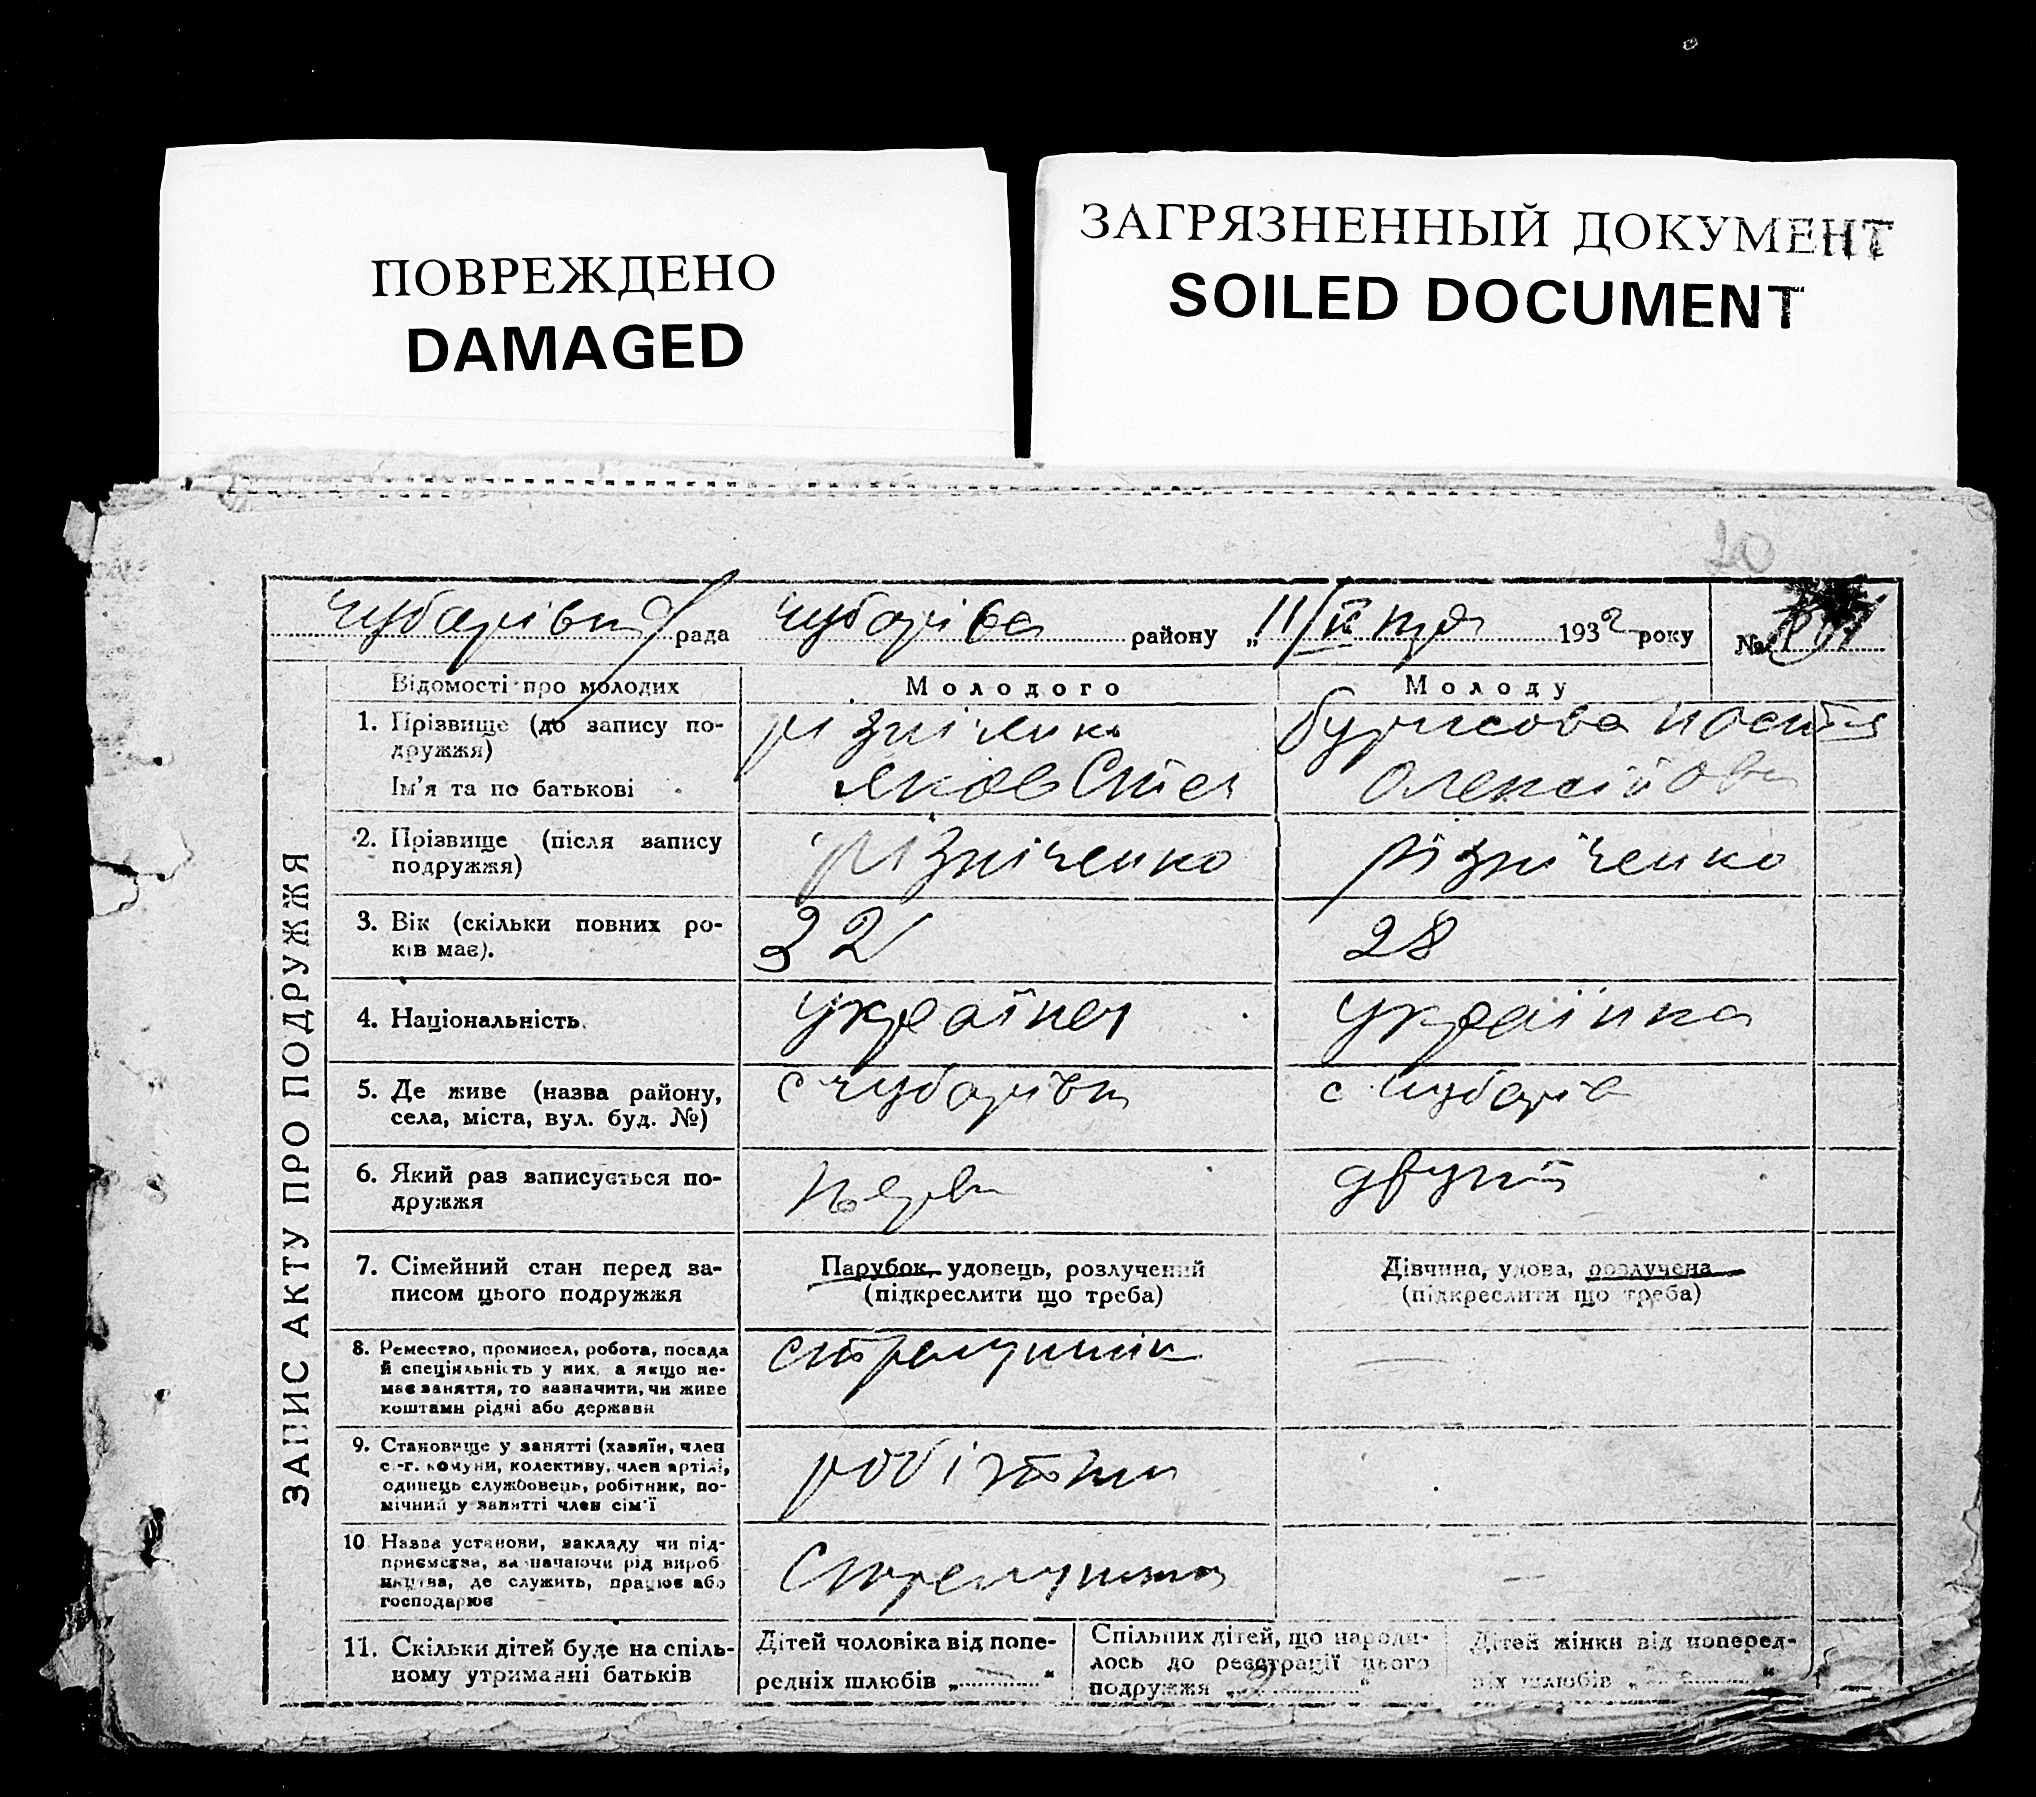 ПОВРЕЖДЕНО
DAMAGED
ЗАГРЯЗНЕННЫЙ ДОКУМЕНТ
SOILED DOCUMENT
20
Чубарівка рада Чубарівка району „11/ 1932 року №
ЗАПИС АКТУ ПРО ПОДРУЖЖЯ
Відомості про молодих
Молодого
Молоду
1. Прізвище (до запису подружжя)
Ім'я та по батькові
Різніченко
Яков Степ
Олексіївна
2. Прізвище (після запису
подружжя)
Різніченко
Різніченко
3. Вік (скільки повних ро-
ків має).
32
28
4. Національність
Українец
Українка
5. Де живе (назва району,
села, міста, вул. буд. №)
с Чубарівка
с Чубарів
6. Який раз записується по-
дружжя
7. Сімейний стан перед за-
писом цього подружжя
Парубок, удовець, розлучений
(підкреслити що треба)
Дівчина, удова, розлучена
(підкреслити що треба)
8. Ремество, промисел, робота, посада
й спеціяльність у них, а якщо не-
має заняття, то зазначити, чи живе
коштами рідні або держави
9. Становище у занятті (хазяїн, член
с.-г. комуни, колективу, член артілі,
одинець службовець, робітник, по-
мічний у занятті член сім'ї
робітник
10 Назва установи, закладу чи під-
приємства, зазначаючи рід вироб-
ництва, де служить, працює або
господарює
11. Скільки дітей буде на спіль-
ному утриманні батьків
Дітей чоловіка від попе-
редніх шлюбів „ “
Спільних дітей, що народи-
лось до реєстрації цього
подружжя „2 “
Дітей жінки від поперед-
ніх шлюбів „ “